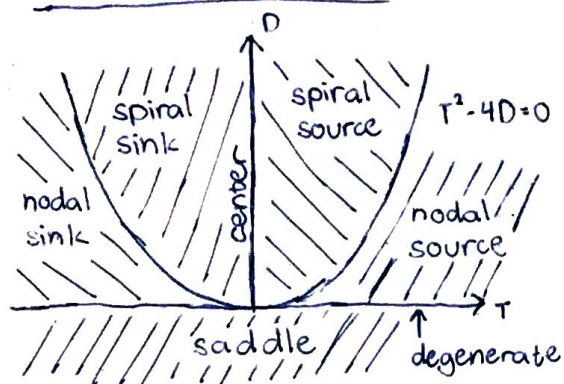 D
spiral
sink
spiral
source
T²-4D=0
center
nodal
sink
nodal
source
T
saddle
degenerate